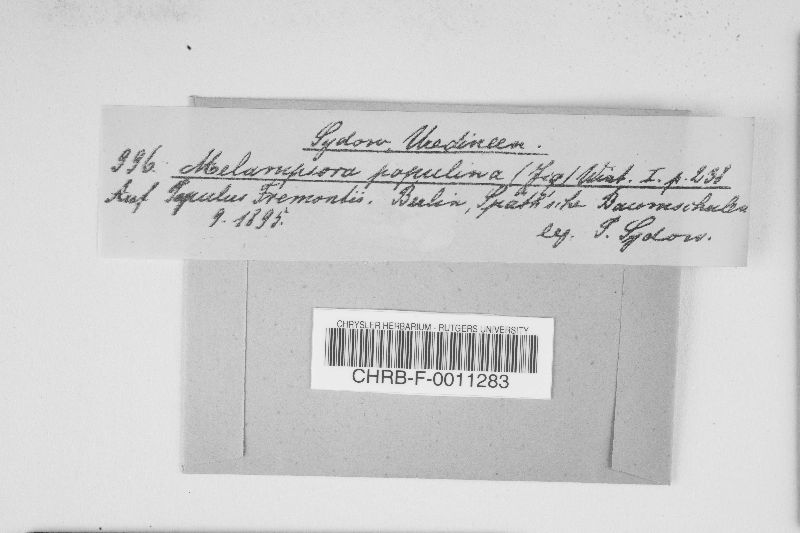 Sydow, Uredineen.
996. Melampsora populina (Jcq) Wint. I. p. 238
Auf Populus Fremontii. Berlin, Späth'sche Baumschulen
9. 1895. leg. P. Sydow.
CHRYSLER HERBARIUM - RUTGERS UNIVERSITY
CHRB-F-0011283